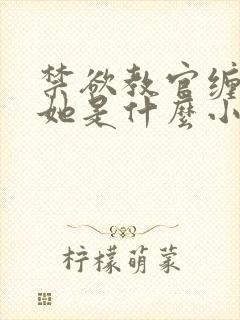 禁欲教官缠
她是什麼小
柠檬萌菜